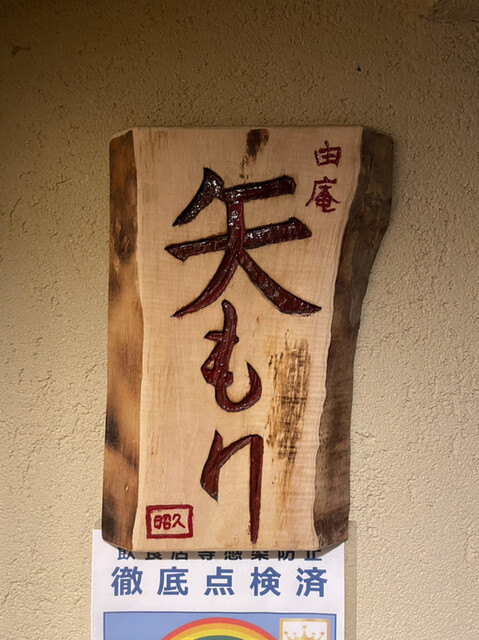 由庵
矢もり
昭久
飲食店等感染防止
徹底点検済